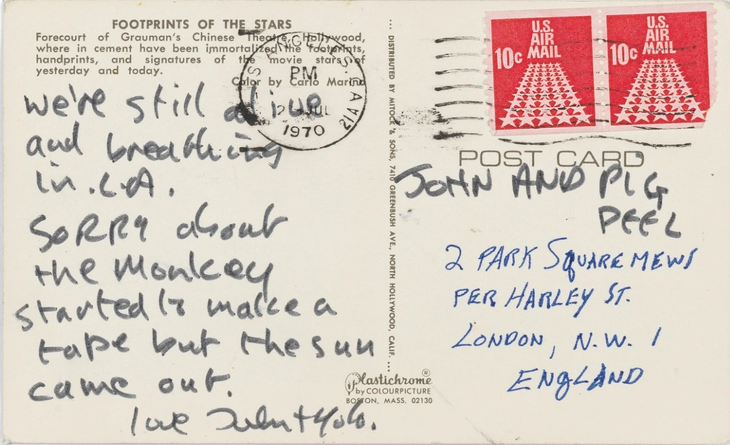 FOOTPRINTS OF THE STARS
Forecourt of Grauman's Chinese Theatre, Hollywood,
where in cement have been immortalized the footprints,
handprints, and signatures of the movie stars of
yesterday and today.
Color by Carlo Marino
we're still alive
and breathing
in L.A.
SORRY about
the Monkey
started to make a
tape but the sun
came out.
love John + Yoko.
LOS ANGELES
PM
JUL
1970
DISTRIBUTED BY MITOCK & SONS, 7410 GREENBUSH AVE., NORTH HOLLYWOOD, CALIF.
Plastichrome®
by COLOURPICTURE
BOSTON, MASS. 02130
U.S.
AIR
MAIL
10c
U.S.
AIR
MAIL
10c
POST CARD
JOHN AND PIG
PEEL
2 PARK SQUARE MEWS
PER HARLEY ST.
LONDON, N.W. 1
ENGLAND